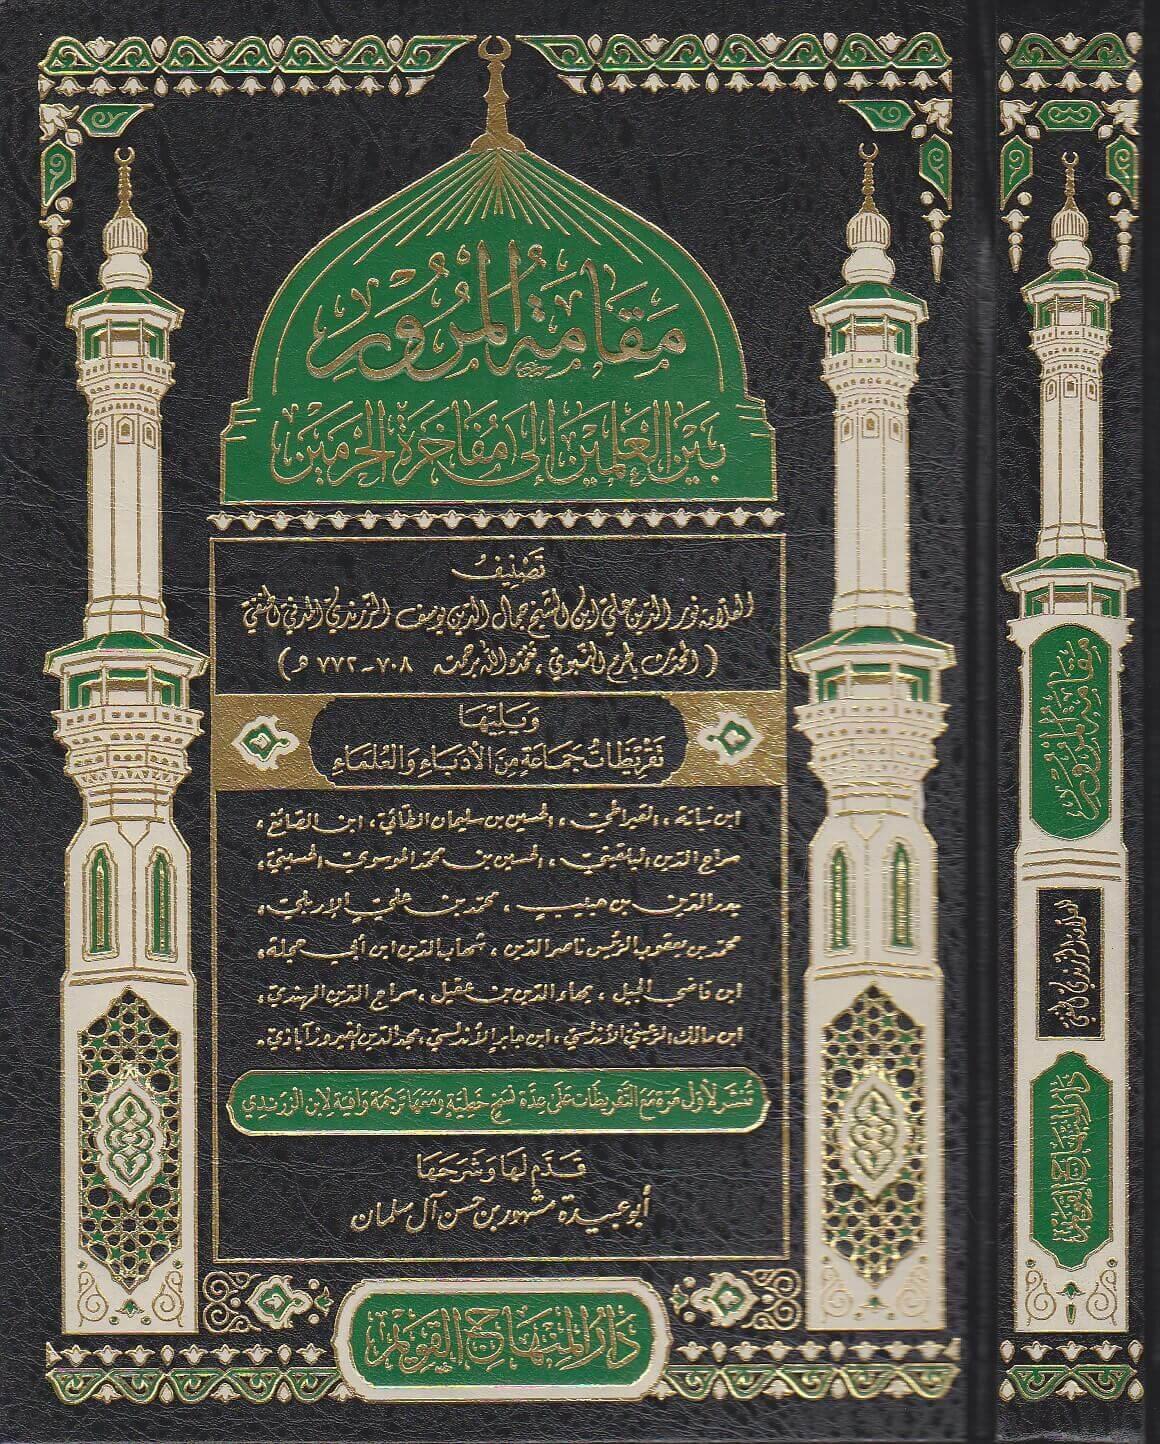 مَقَامَةُ المُرُورِ
بَيْنَ العَلَمَيْنِ إِلَى مُفَاخَرَةِ الحَرَمَيْنِ
تَصْنِيفُ
العلامة نور الدين علي ابن الشيخ جمال الدين يوسف الزرندي المدني الحنفي
(المحدث بالحرم النبوي، تغمده الله برحمته ٧٠٨-٧٧٢ هـ)
وَيَلِيهَا
تَقْرِيظَاتُ جَمَاعَةٍ مِنَ الأُدَبَاءِ وَالعُلَمَاءِ
ابن نباتة، القيراطي، الحسين بن سليمان الطائي، ابن الصائغ،
سراج الدين البلقيني، الحسين بن محمد الموسوي الحسيني،
بدر الدين بن حبيب، محمد بن علي الإربلي،
محمد بن يعقوب الرئيس ناصر الدين، شهاب الدين ابن أبي حجلة،
ابن قاضي الجبل، بهاء الدين بن عقيل، سراج الدين الهندي،
ابن مالك الرعيني الأندلسي، ابن جابر الأندلسي، مجد الدين الفيروزآبادي.
تُنْشَر لأوّل مَرّة مَع التَّقْرِيظَات عَلَى عِدَّة نُسَخ خَطِّيّة وَمَعَهَا تَرْجَمَة وَافِيَة لابْنِ الزَّرَنْدِي
قَدَّمَ لَهَا وَشَرَحَهَا
أبو عبيدة مشهور بن حسن آل سلمان
دَارُ المِنْهَاجِ القَوِيْمِ
مَقَامَةُ المُرُورِ
ابن الزرندي الحنفي
دَارُ المِنْهَاجِ القَوِيْمِ